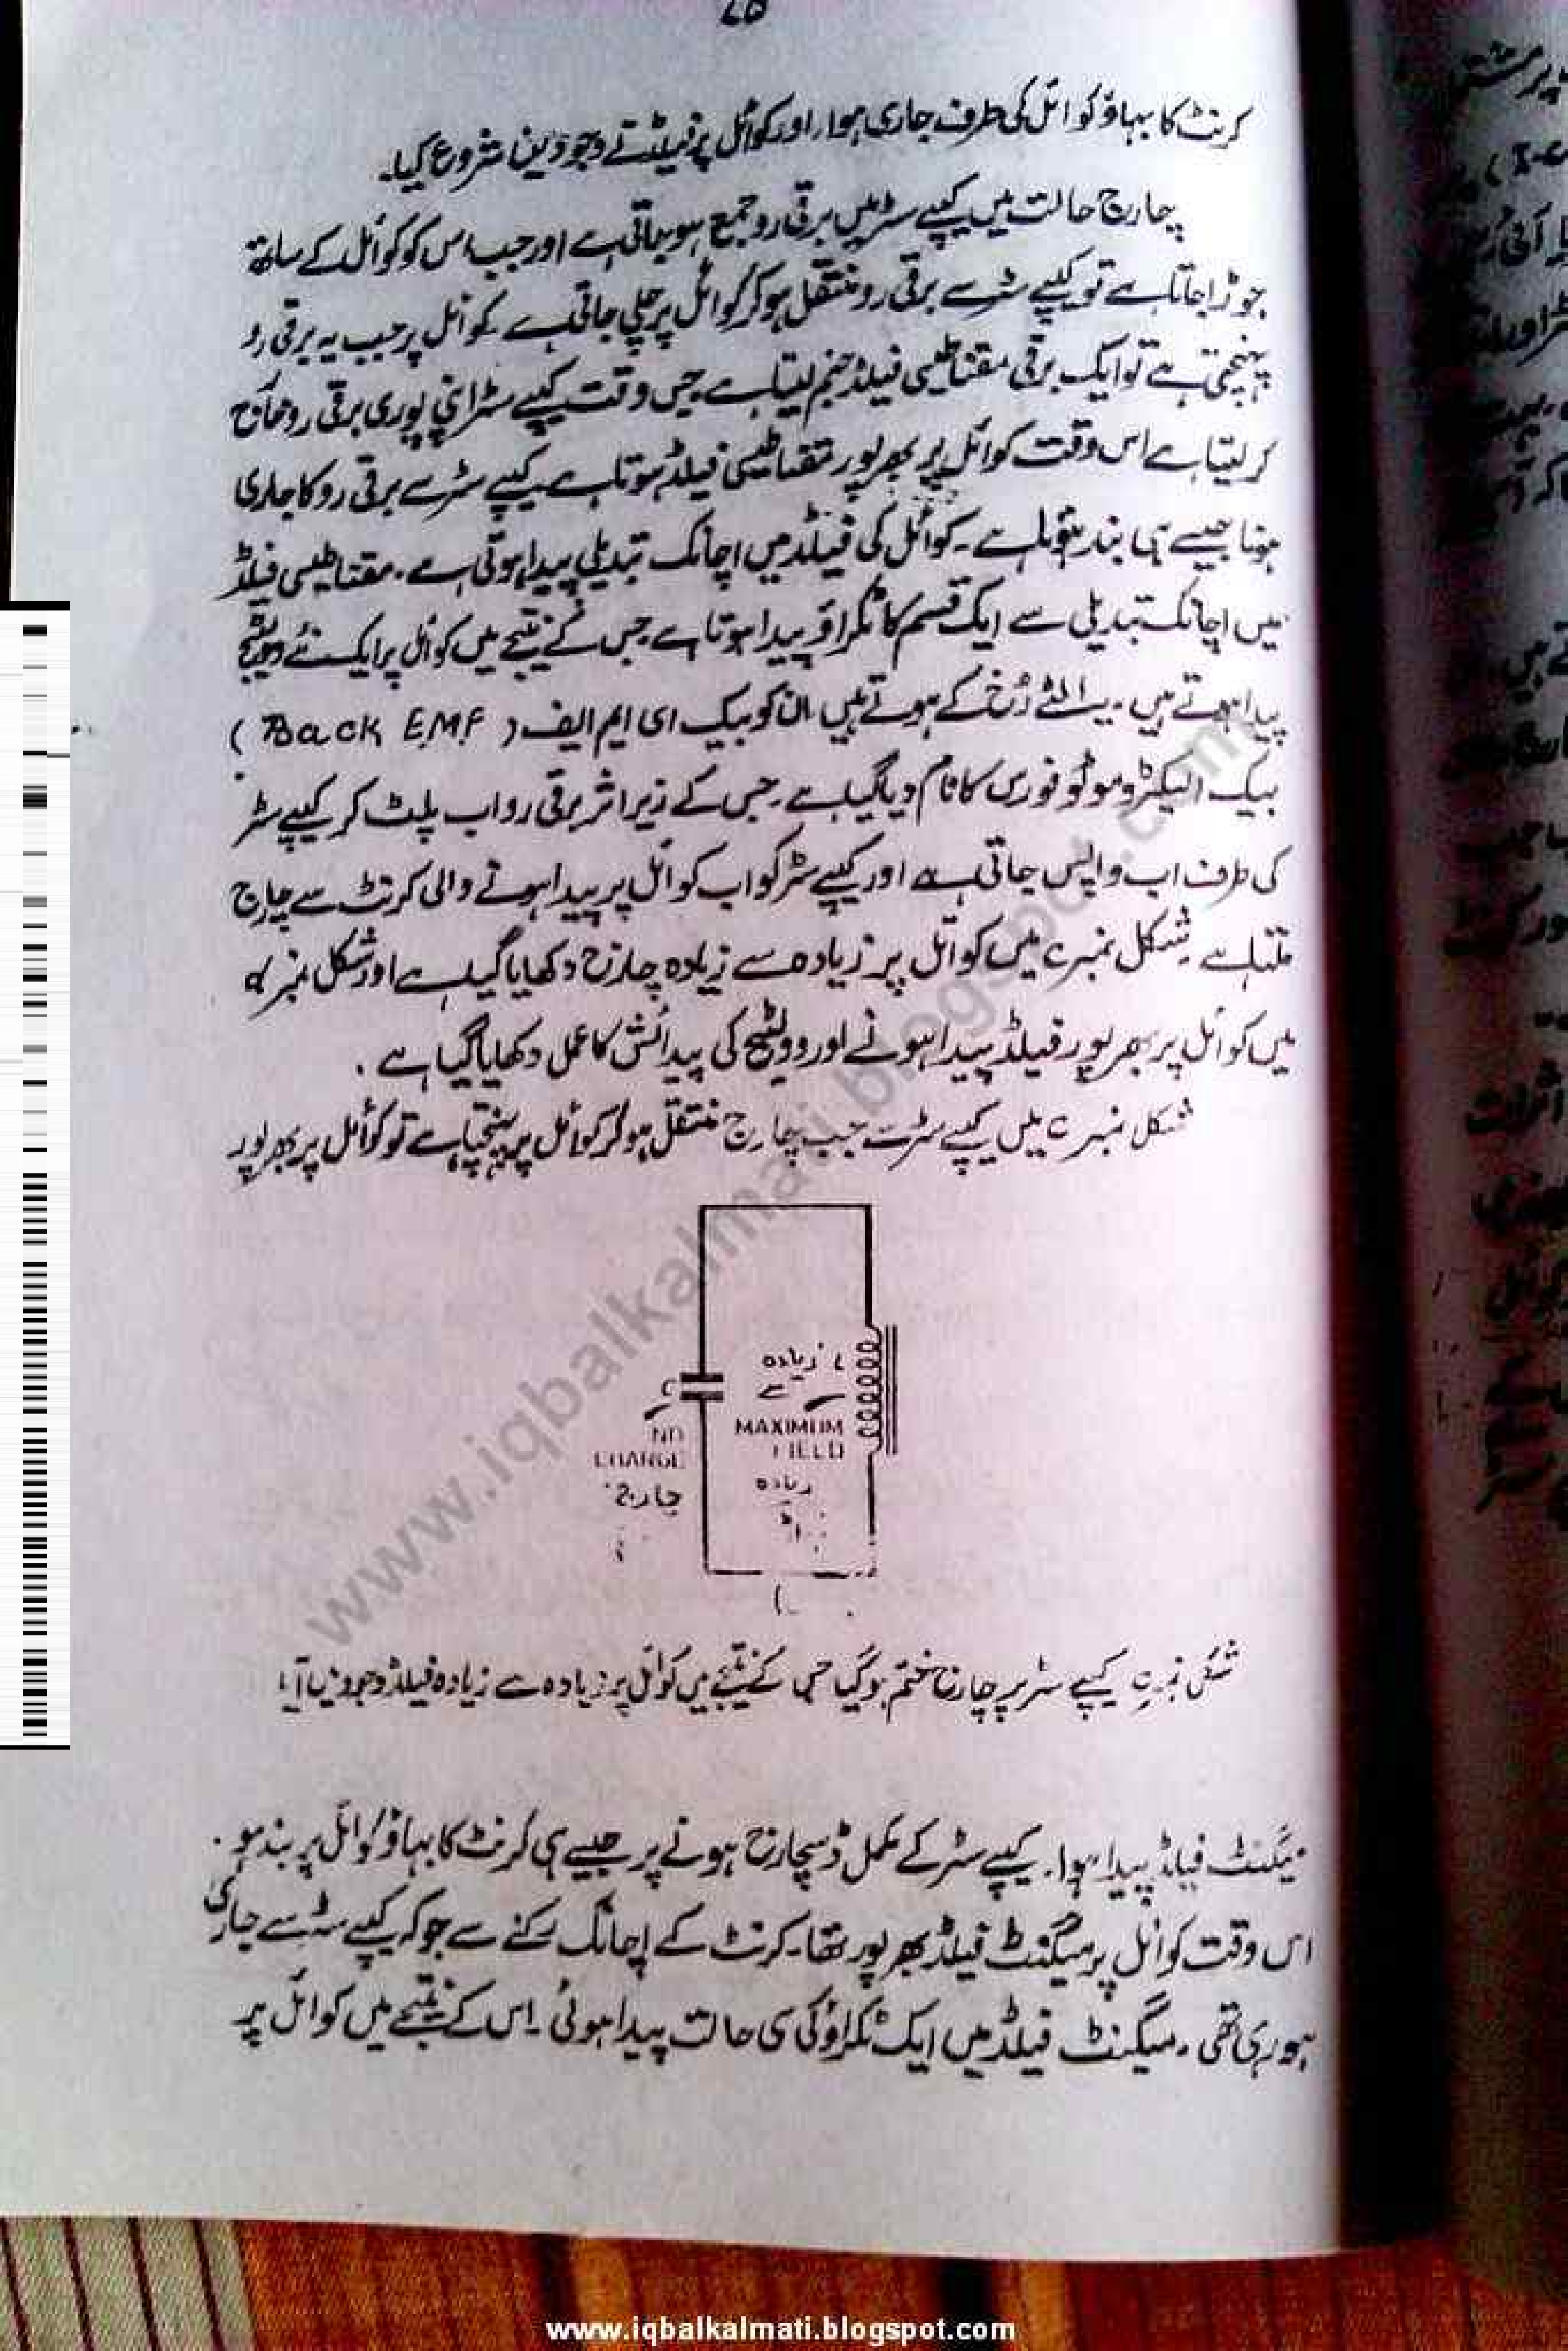 کرنٹ کا بہاؤ کوائل کی طرف جاری ہوا، اور کوائل پر فیلڈ نے وجود دینا شروع کیا۔
چارج حالت میں کیپے سٹر میں برقی رو جمع ہو جاتی ہے اور جب اس کو کوائل کے ساتھ
جوڑا جاتا ہے تو کیپے سٹر سے برقی رو منتقل ہو کر کوائل پر چلی جاتی ہے۔ کوائل پر جب یہ برقی رو
پہنچتی ہے تو ایک برقی مقناطیسی فیلڈ جنم لیتا ہے جس وقت کیپے سٹر اپنی پوری برقی رو خارج
کر لیتا ہے اس وقت کوائل پر بھرپور مقناطیسی فیلڈ ہوتا ہے۔ کیپے سٹر سے برقی رو کا جاری
ہونا جیسے ہی بند ہوتا ہے۔ کوائل کی فیلڈ میں اچانک تبدیلی پیدا ہوتی ہے۔ مقناطیسی فیلڈ
میں اچانک تبدیلی سے ایک قسم کا ٹکراؤ پیدا ہوتا ہے جس کے نتیجے میں کوائل پر ایک نئے وولٹیج
پیدا ہوتے ہیں۔ یہ الٹے رُخ کے ہوتے ہیں ان کو بیک ای ایم ایف (Back EMF)
بیک الیکٹرو موٹو فوری کا نام دیا گیا ہے۔ جس کے زیر اثر برقی رو اب پلٹ کر کیپے سٹر
کی طرف اب واپس جاتی ہے اور کیپے سٹر کو اب کوائل پر پیدا ہونے والی کرنٹ سے چارج
ملتا ہے۔ شکل نمبر c میں کوائل پر زیادہ سے زیادہ چارج دکھایا گیا ہے اور شکل نمبر d
میں کوائل پر بھرپور فیلڈ پیدا ہونے اور وولٹیج کی پیدائش کا عمل دکھایا گیا ہے۔
شکل نمبر c میں کیپے سٹر سے جب چارج منتقل ہو کر کوائل پر پہنچتا ہے تو کوائل پر بھرپور
زیادہ
سے
C
MAXIMUM
FIELD
NO
CHARGE
زیادہ
چارج
شکل نمبر c کیپے سٹر پر چارج ختم ہو گیا جس کے نتیجے میں کوائل پر زیادہ سے زیادہ فیلڈ وجود میں آیا
میگنٹ فیلڈ پیدا ہوا۔ کیپے سٹر کے مکمل ڈسچارج ہونے پر جیسے ہی کرنٹ کا بہاؤ کوائل پر بند ہو
اس وقت کوائل پر میگنٹ فیلڈ بھرپور تھا۔ کرنٹ کے اچانک رکنے سے جو کہ کیپے سٹر سے جاری
ہو رہی تھی۔ میگنٹ فیلڈ میں ایک ٹکراؤ کی سی حالت پیدا ہوئی۔ اس کے نتیجے میں کوائل پر
www.iqbalkalmati.blogspot.com
www.iqbalkalmati.blogspot.com